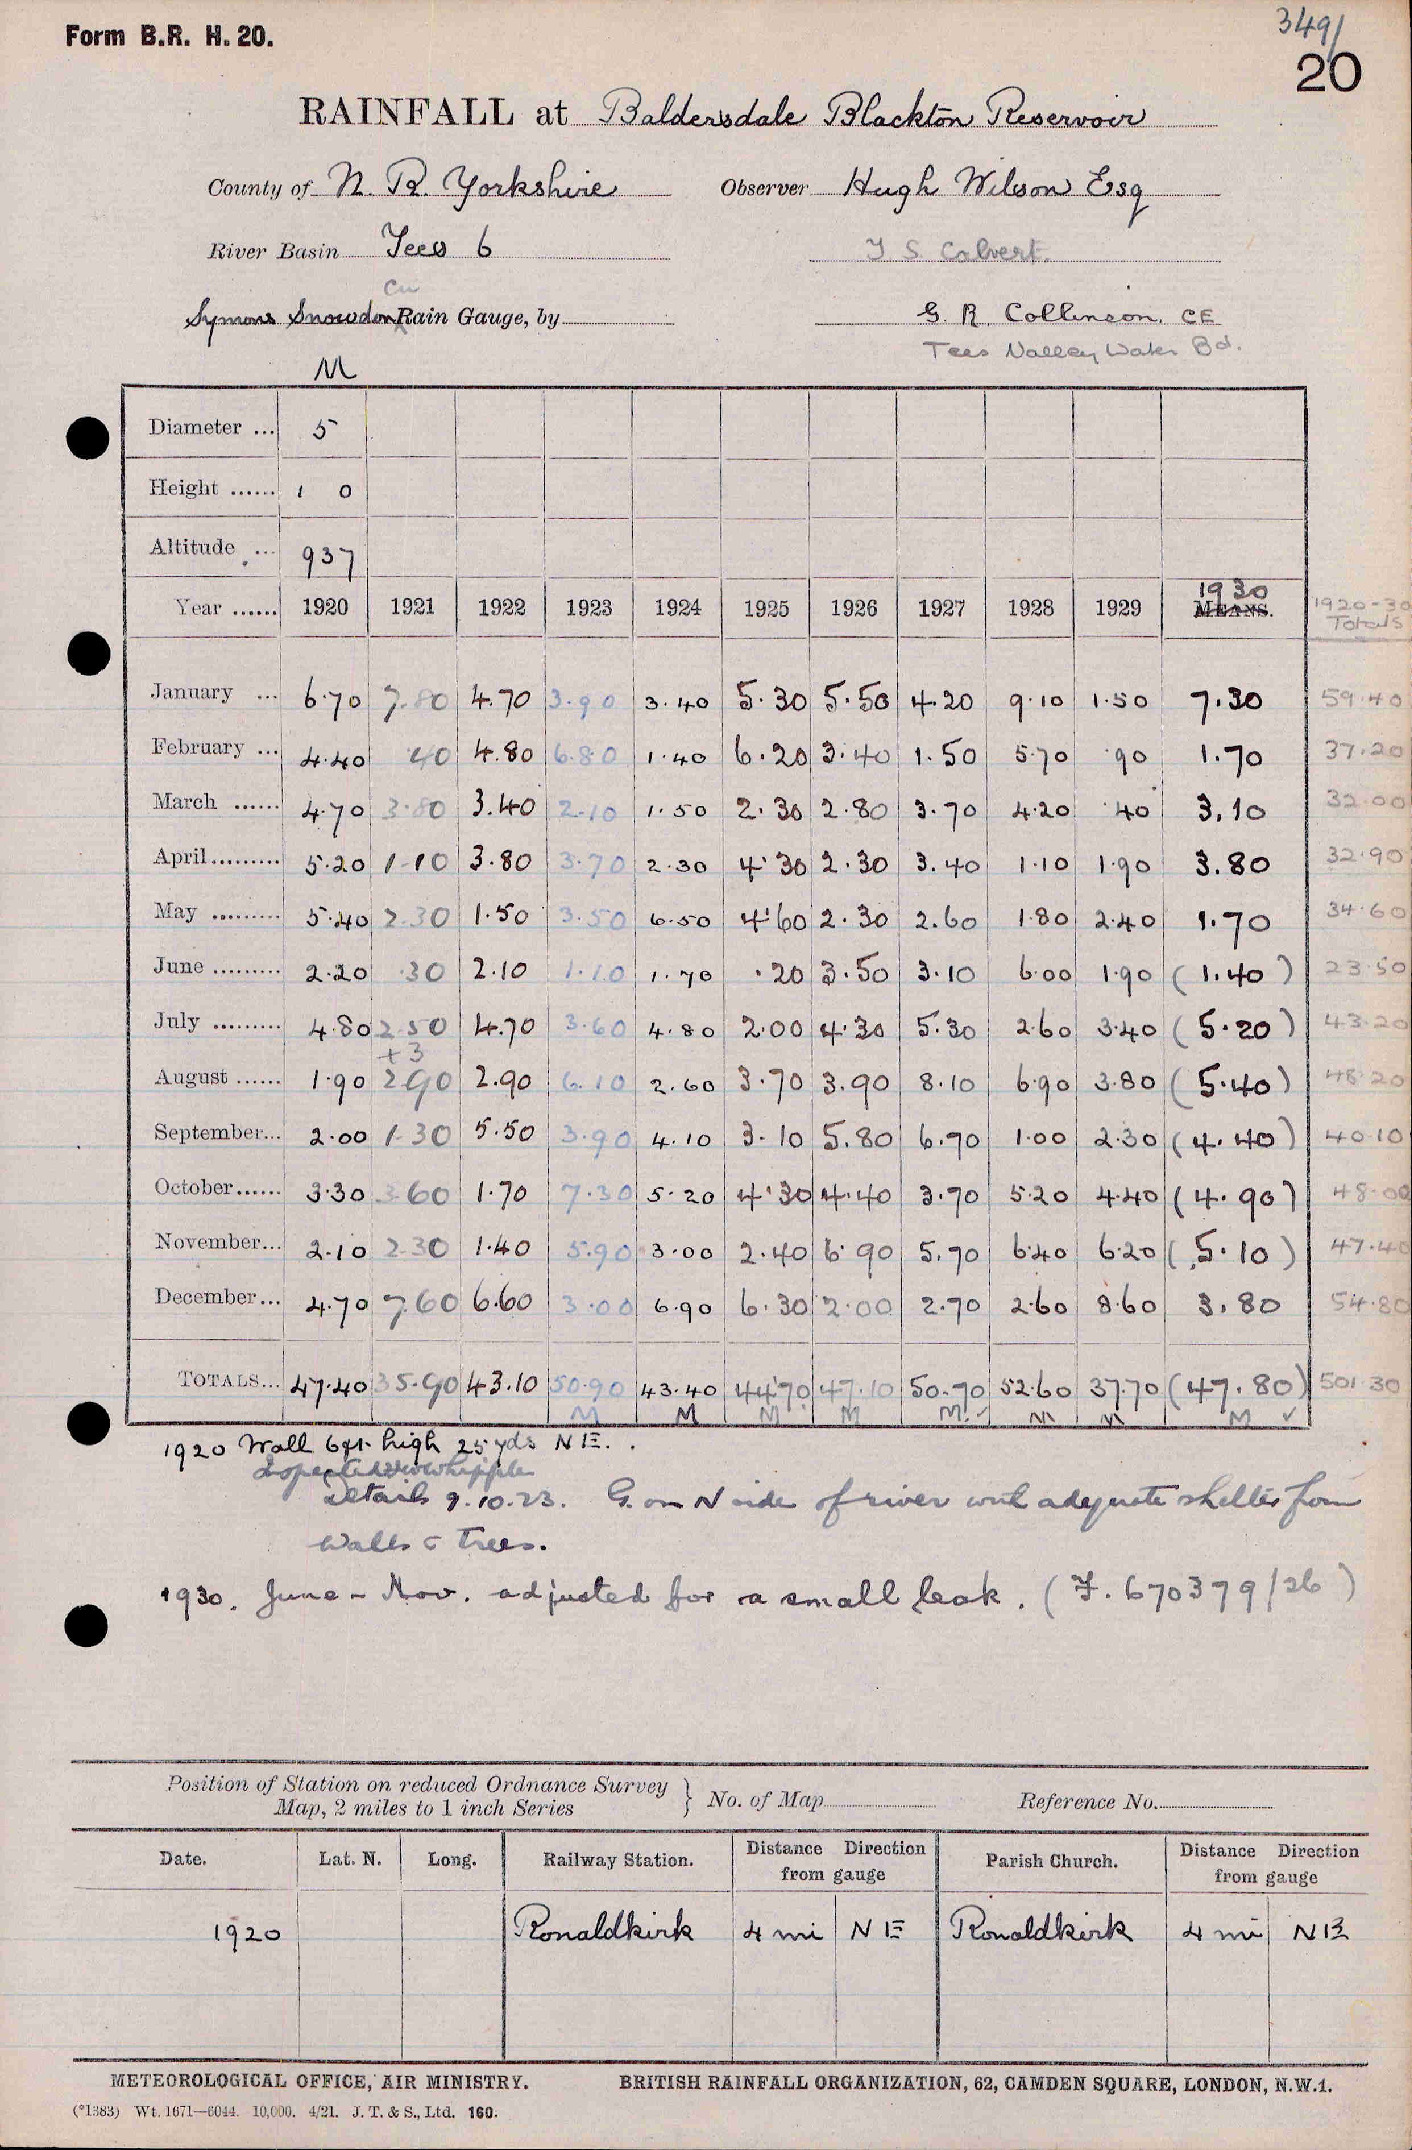 Form B.R. H. 20.
349/
20
RAINFALL at Baldersdale Blackton Reservoir
County of N. R. Yorkshire Observer Hugh Wilson Esq
River Basin Tees 6 T S Calvert.
Cu
Symons Snowdon Rain Gauge, by G. R. Collinson. CE
Tees Valley Water Bd.
M
Diameter ... 5
Height ...... 1 0
Altitude ... 937
Year ...... 1920 1921 1922 1923 1924 1925 1926 1927 1928 1929 MEANS. 1930 1920-30 Totals
January ... 6.70 7.80 4.70 3.90 3.40 5.30 5.50 4.20 9.10 1.50 7.30 59.40
February ... 4.40 .40 4.80 6.80 1.40 6.20 3.40 1.50 5.70 .90 1.70 37.20
March ...... 4.70 3.80 3.40 2.10 1.50 2.30 2.80 3.70 4.20 .40 3.10 32.00
April......... 5.20 1.10 3.80 3.70 2.30 4.30 2.30 3.40 1.10 1.90 3.80 32.90
May ......... 5.40 2.30 1.50 3.50 6.50 4.60 2.30 2.60 1.80 2.40 1.70 34.60
June ......... 2.20 .30 2.10 1.10 1.70 .20 3.50 3.10 6.00 1.90 (1.40) 23.50
July ......... 4.80 2.50 4.70 3.60 4.80 2.00 4.30 5.30 2.60 3.40 (5.20) 43.20
+3
August ...... 1.90 2.90 2.90 6.10 2.60 3.70 3.90 8.10 6.90 3.80 (5.40) 48.20
September... 2.00 1.30 5.50 3.90 4.10 3.10 5.80 6.70 1.00 2.30 (4.40) 40.10
October...... 3.30 3.60 1.70 7.30 5.20 4.30 4.40 3.70 5.20 4.40 (4.90) 48.00
November... 2.10 2.30 1.40 5.90 3.00 2.40 6.90 5.70 6.40 6.20 (5.10) 47.40
December... 4.70 7.60 6.60 3.00 6.90 6.30 2.00 2.70 2.60 8.60 3.80 54.80
TOTALS... 47.40 35.90 43.10 50.90 43.40 44.70 47.10 50.70 52.60 37.70 (47.80) 501.30
M M M M M. ✓ M M M ✓
1920 Wall 6ft. high 25 yds N E.
Details 9.10.23. G. on N side of river with adequate shelter from
walls & trees.
1930. June - Nov. adjusted for a small leak. (F. 670379/26)
Position of Station on reduced Ordnance Survey
Map, 2 miles to 1 inch Series } No. of Map Reference No.
Date. Lat. N. Long. Railway Station. Distance Direction from gauge Parish Church. Distance Direction from gauge
1920 Romaldkirk 4 mi N E Romaldkirk 4 mi N E
METEOROLOGICAL OFFICE, AIR MINISTRY. BRITISH RAINFALL ORGANIZATION, 62, CAMDEN SQUARE, LONDON, N.W.1.
(*1383) Wt. 1671—6044. 10,000. 4/21. J. T. & S., Ltd. 160.